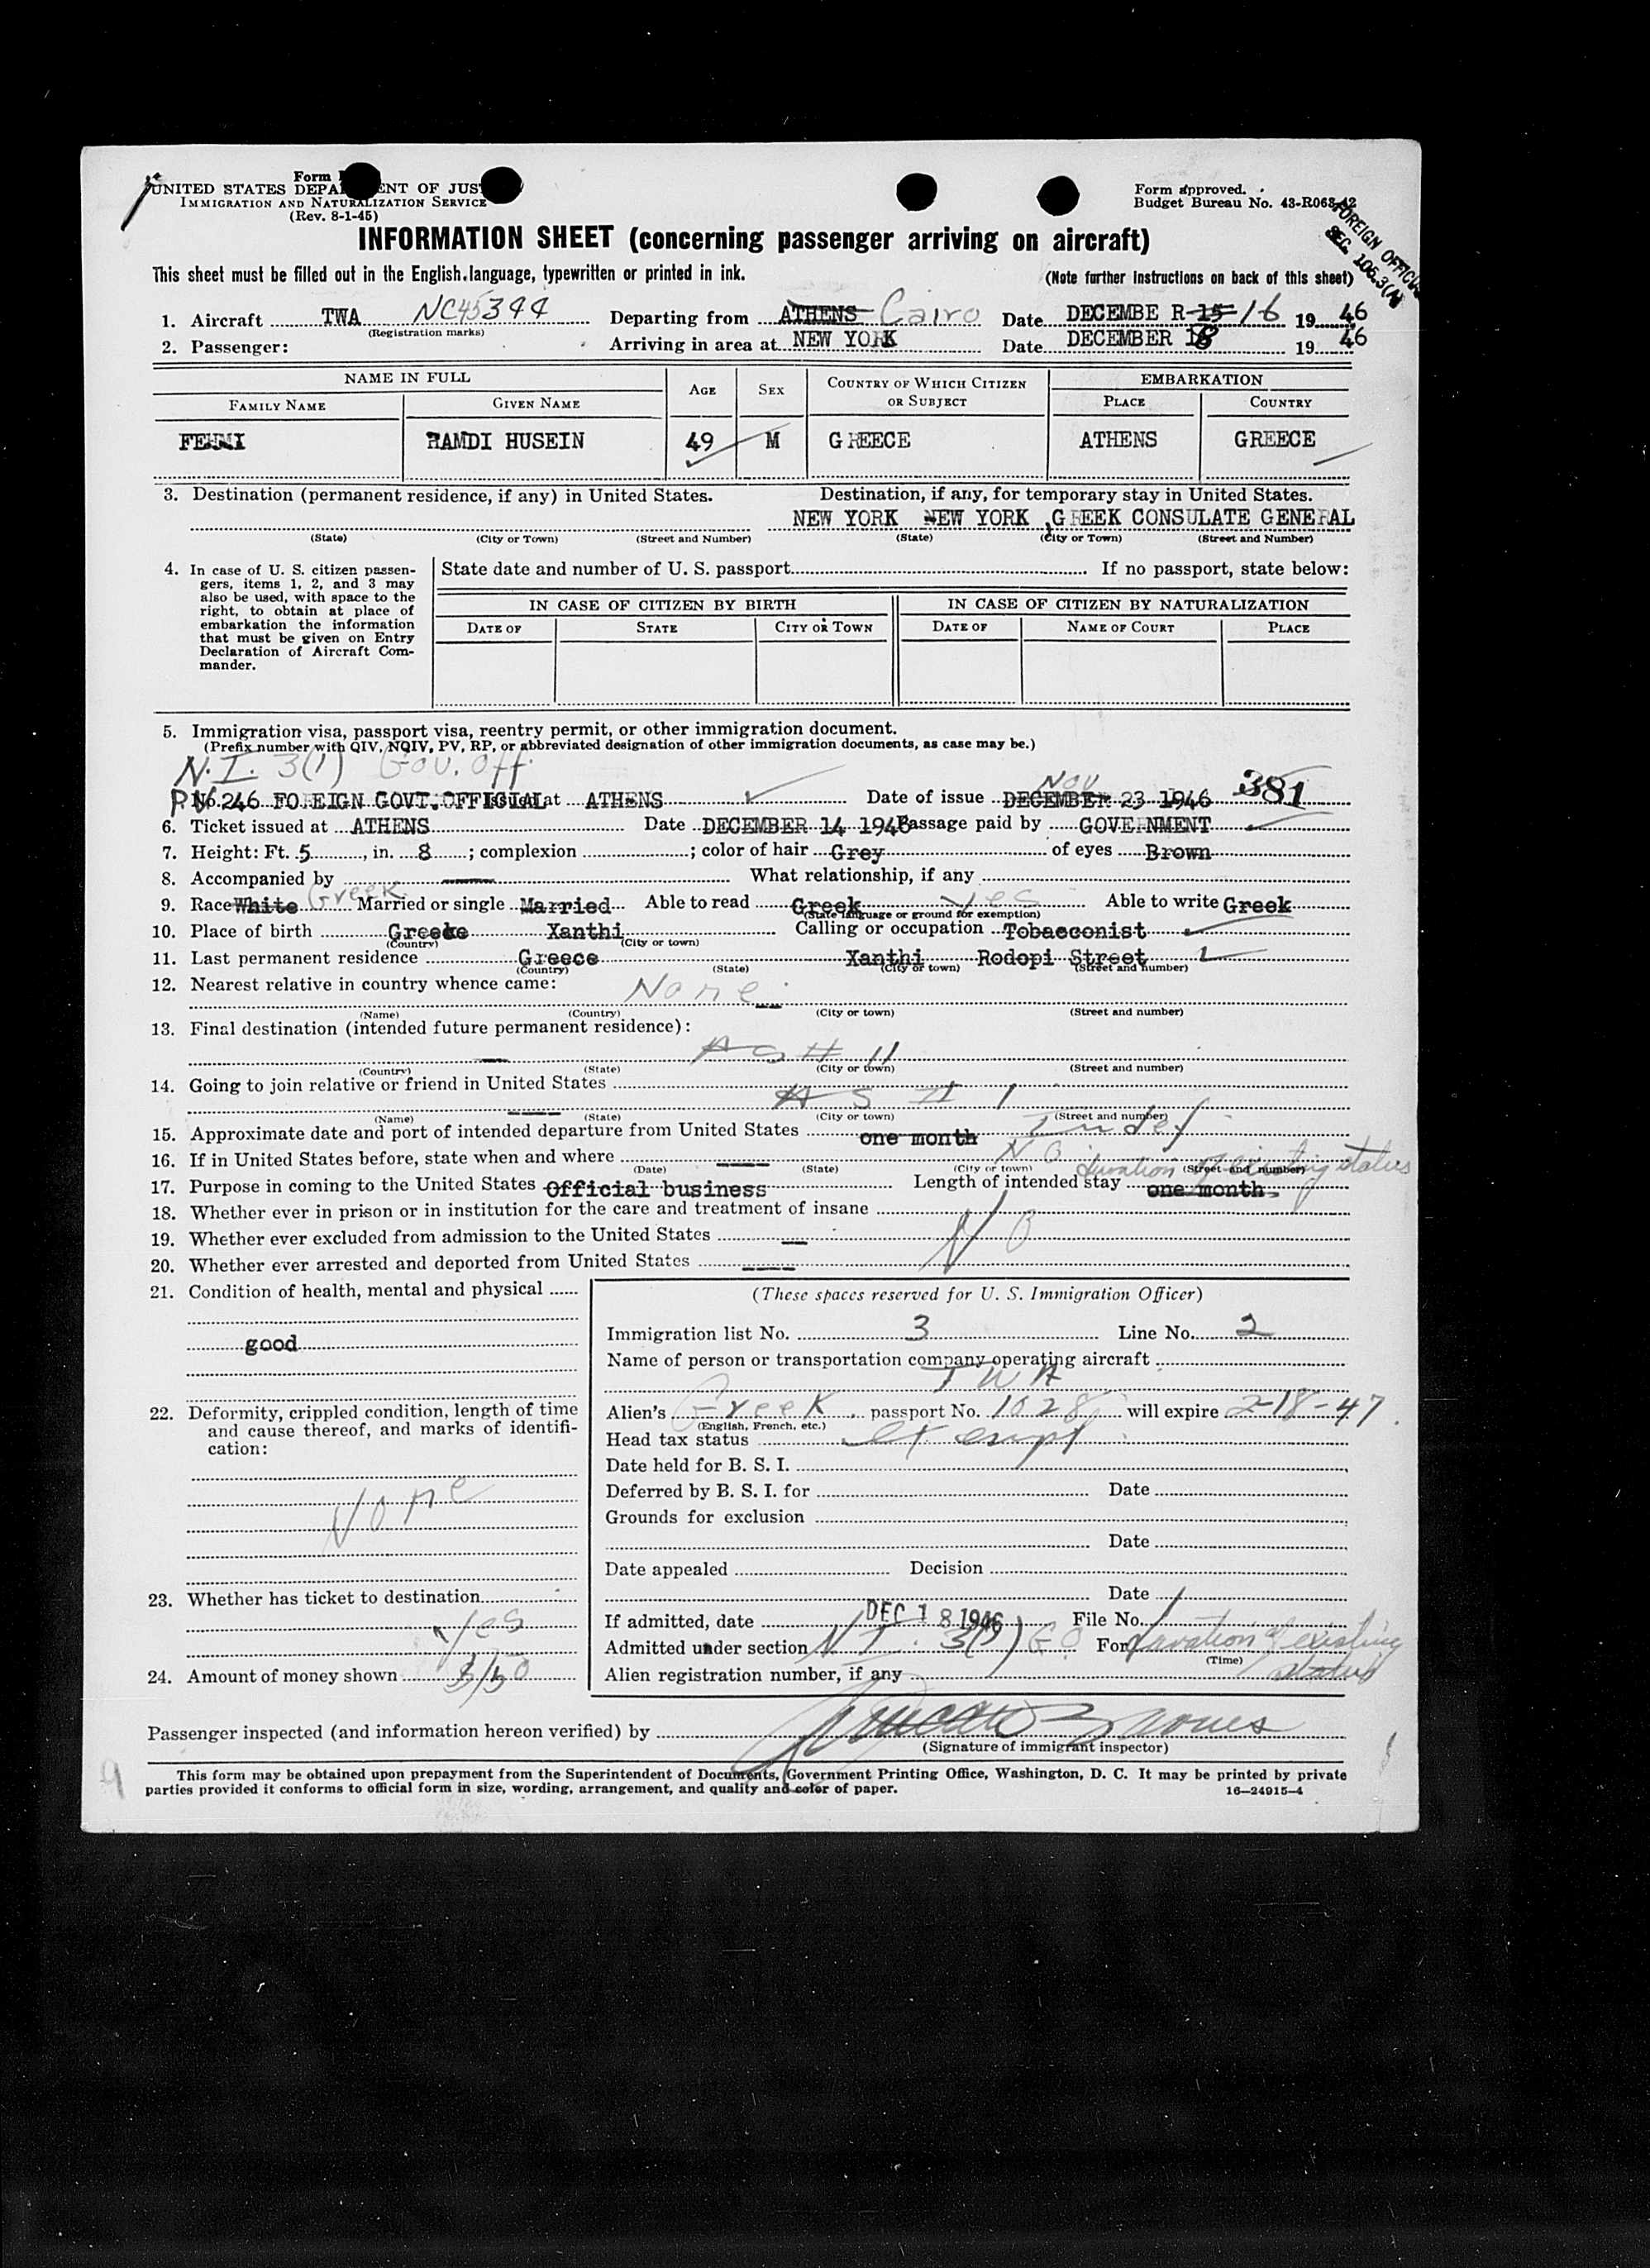 Form
UNITED STATES DEPARTMENT OF JUSTICE
IMMIGRATION AND NATURALIZATION SERVICE
(Rev. 8-1-45)
Form approved.
Budget Bureau No. 43-R063-42
FOREIGN OFFICIAL
SEC. 105.3(A)
INFORMATION SHEET (concerning passenger arriving on aircraft)
This sheet must be filled out in the English language, typewritten or printed in ink. (Note further instructions on back of this sheet)
1. Aircraft TWA NC45344 Departing from ATHENS Cairo Date DECEMBE R 15 16 1946
(Registration marks)
2. Passenger: Arriving in area at NEW YORK Date DECEMBER 18 1946
NAME IN FULL AGE SEX COUNTRY OF WHICH CITIZEN OR SUBJECT EMBARKATION
FAMILY NAME GIVEN NAME PLACE COUNTRY
FEHMI HAMDI HUSEIN 49 M GREECE ATHENS GREECE
3. Destination (permanent residence, if any) in United States. Destination, if any, for temporary stay in United States.
NEW YORK NEW YORK, GREEK CONSULATE GENERAL
(State) (City or Town) (Street and Number) (State) (City or Town) (Street and Number)
4. In case of U. S. citizen passengers, items 1, 2, and 3 may also be used, with space to the right, to obtain at place of embarkation the information that must be given on Entry Declaration of Aircraft Commander.
State date and number of U. S. passport If no passport, state below:
IN CASE OF CITIZEN BY BIRTH IN CASE OF CITIZEN BY NATURALIZATION
DATE OF STATE CITY OR TOWN DATE OF NAME OF COURT PLACE
5. Immigration visa, passport visa, reentry permit, or other immigration document.
(Prefix number with QIV, NQIV, PV, RP, or abbreviated designation of other immigration documents, as case may be.)
N.I. 3(1) Gov. Off.
PV No. 246 FOREIGN GOVT. OFFICIAL at ATHENS Date of issue DECEMBER Nov 23 1946 381
6. Ticket issued at ATHENS Date DECEMBER 14 1946 Passage paid by GOVERNMENT
7. Height: Ft. 5, in. 8; complexion ; color of hair Grey of eyes Brown
8. Accompanied by — What relationship, if any
9. Race White Greek Married or single Married Able to read Greek Yes Able to write Greek
(State language or ground for exemption)
10. Place of birth Greece Xanthi Calling or occupation Tobacconist
(Country) (City or town)
11. Last permanent residence Greece Xanthi Rodopi Street
(Country) (State) (City or town) (Street and number)
12. Nearest relative in country whence came: None
(Name) (Country) (City or town) (Street and number)
13. Final destination (intended future permanent residence):
— AS # 11
(Country) (State) (City or town) (Street and number)
14. Going to join relative or friend in United States
— AS # 1
(Name) (State) (City or town) (Street and number)
15. Approximate date and port of intended departure from United States one month Indef
16. If in United States before, state when and where — NO
(Date) (State) (City or town) (Street and number)
duration of existing status
17. Purpose in coming to the United States Official business Length of intended stay one month
18. Whether ever in prison or in institution for the care and treatment of insane
19. Whether ever excluded from admission to the United States — No
20. Whether ever arrested and deported from United States —
21. Condition of health, mental and physical
good
22. Deformity, crippled condition, length of time and cause thereof, and marks of identification:
None
23. Whether has ticket to destination
Yes
24. Amount of money shown $150
(These spaces reserved for U. S. Immigration Officer)
Immigration list No. 3 Line No. 2
Name of person or transportation company operating aircraft
TWA
Alien's Greek passport No. 1028 will expire 2-18-47
(English, French, etc.)
Head tax status exempt
Date held for B. S. I.
Deferred by B. S. I. for Date
Grounds for exclusion
Date
Date appealed Decision
Date
If admitted, date DEC 18 1946 File No.
Admitted under section N.I. 3(1) GO For duration of existing status
(Time)
Alien registration number, if any
Passenger inspected (and information hereon verified) by
(Signature of immigrant inspector)
This form may be obtained upon prepayment from the Superintendent of Documents, Government Printing Office, Washington, D. C. It may be printed by private
parties provided it conforms to official form in size, wording, arrangement, and quality and color of paper. 16—24915-4
9